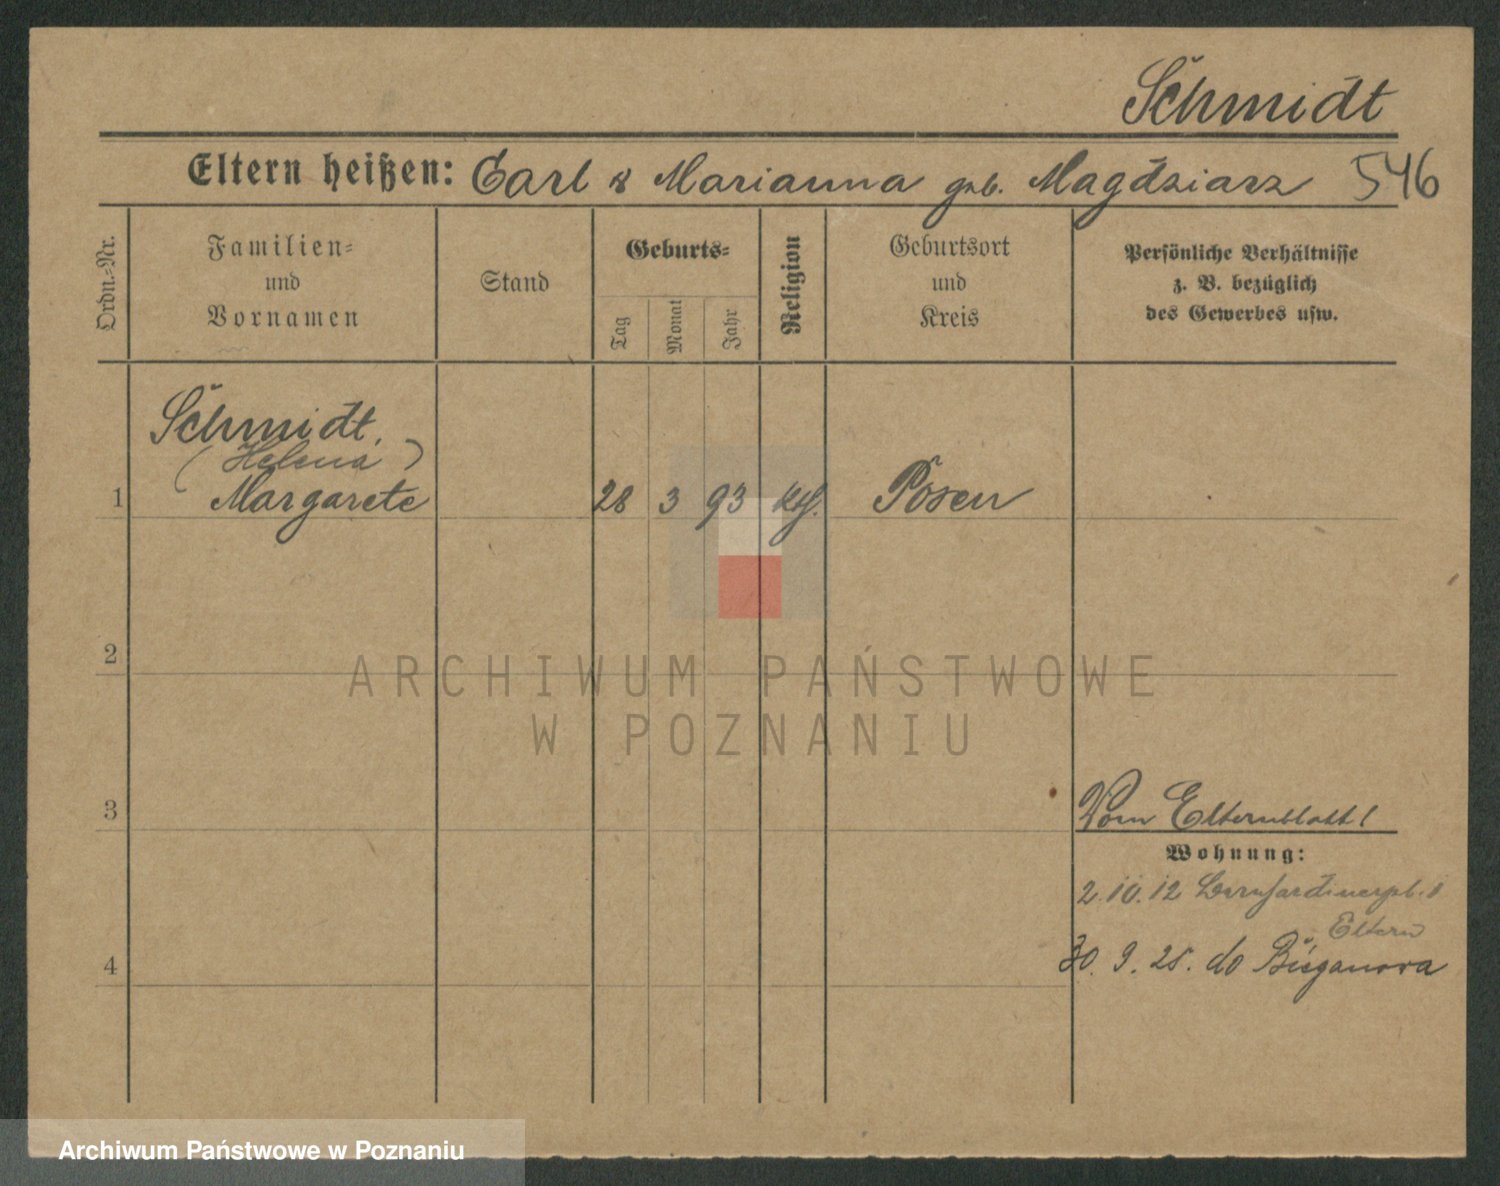 Schmidt
Eltern heißen: Carl & Marianna geb. Magdziarz 546
Ordn.-Nr.
Familien-
und
Vornamen
Stand
Geburts-
Tag
Monat
Jahr
Religion
Geburtsort
und
Kreis
Persönliche Verhältnisse
z. B. bezüglich
des Gewerbes usw.
Schmidt,
(Helena)
1 Margarete 28 3 93 kth. Posen
2
3
Vom Elternblatt!
Wohnung:
2.10.12 Bernhardinerpl. 1
Eltern
4 30. 9. 25. do
ARCHIWUM PAŃSTWOWE
W POZNANIU
Archiwum Państwowe w Poznaniu